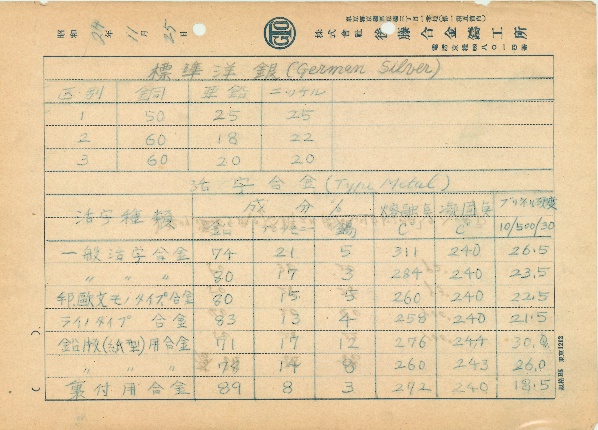 昭和 24年 11月 25日
GTO
東京都文京区
株式會社 後藤合金鑄工所
標準洋銀 (German Silver)
区別 銅 亜鉛 ニッケル
1 50 25 25
2 60 18 22
3 60 20 20
活字合金 (Type Metal)
活字種類 成分 % 熔融点 C° 凝固点 C° ブリネル硬度 10/500/30
鉛 アンチモニー 錫
一般活字合金 74 21 5 311 240 26.5
〃 〃 〃 80 17 3 284 240 23.5
印欧文モノタイプ合金 80 15 5 260 240 22.5
ライノタイプ 合金 83 13 4 258 240 21.5
鉛版(紙型)用合金 71 17 12 276 244
〃 〃 14 8 260 243 26.0
裏付用合金 89 8 3 272 240 18.5